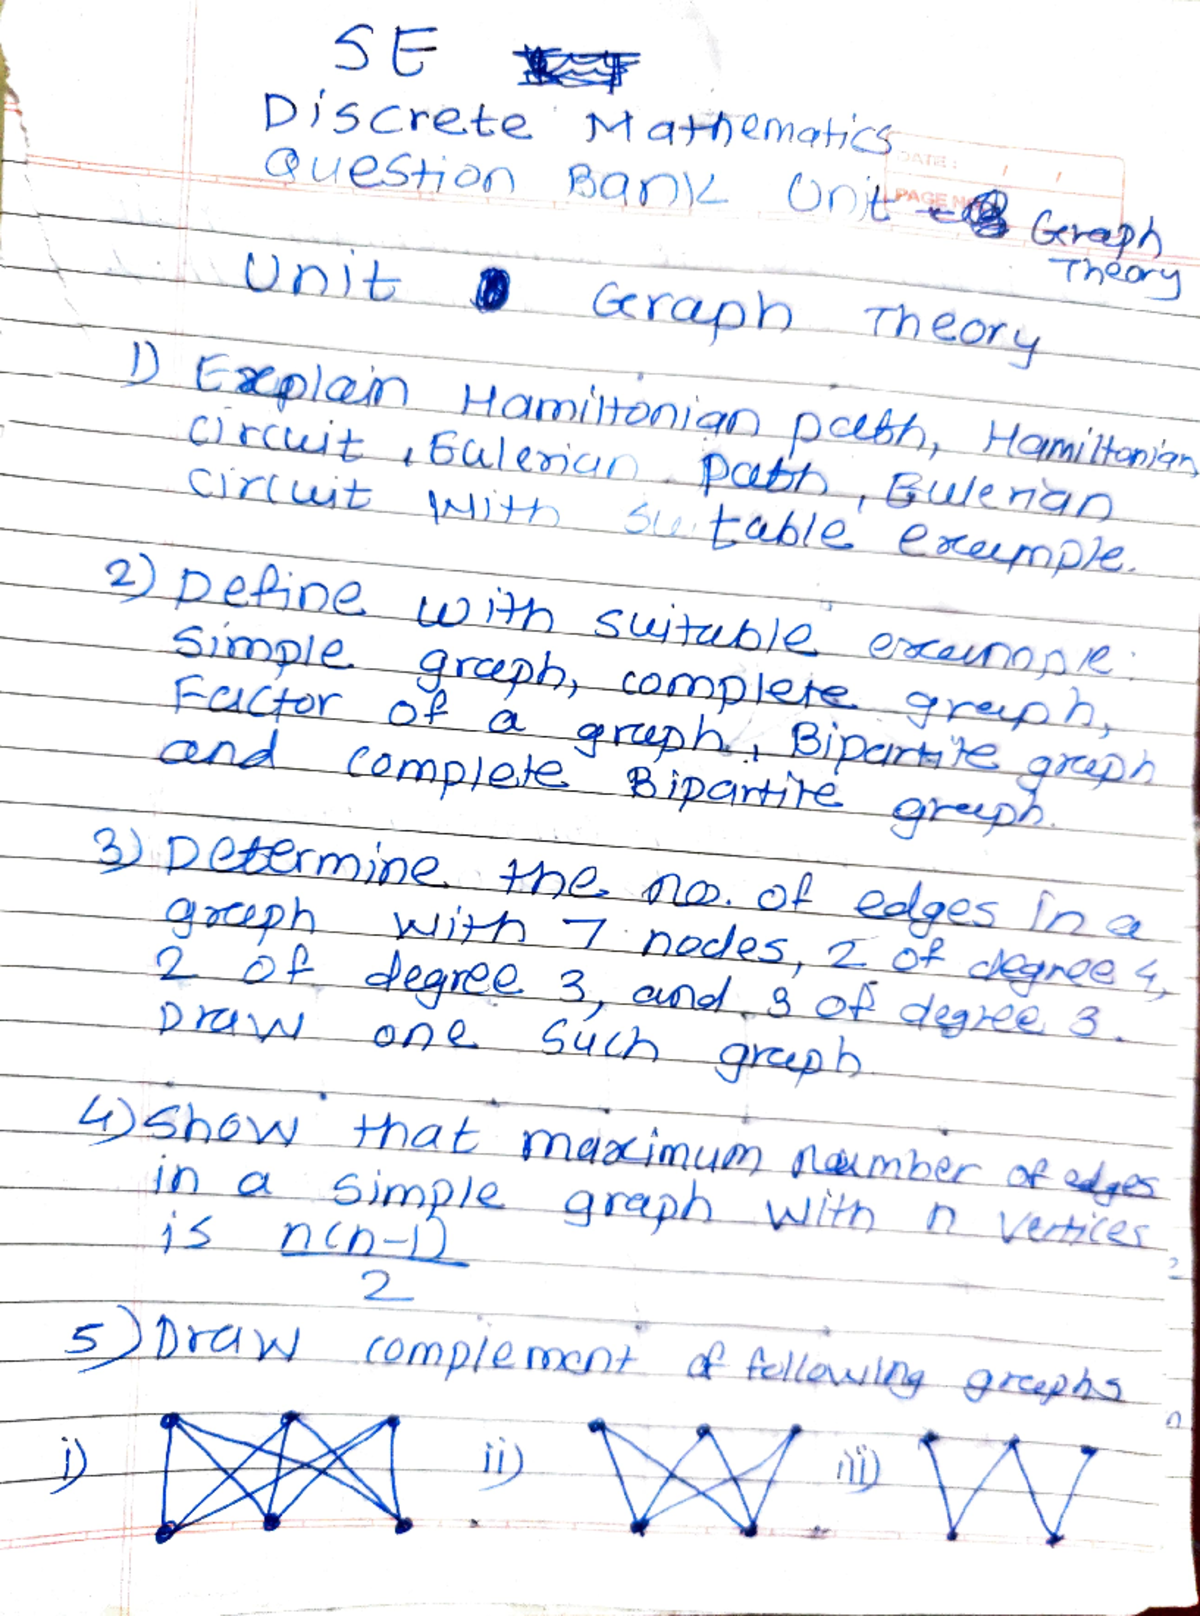 SE
Discrete Mathematics
DATE: / /
PAGE NO
Question Bank Unit - Graph
Theory
Unit Graph Theory
1) Explain Hamiltonian path, Hamiltonian
circuit, Eulerian path, Eulerian
circuit with suitable example.
2) Define with suitable example:
simple graph, complete graph,
Factor of a graph, Bipartite graph
and complete Bipartite graph.
3) Determine the no. of edges in a
graph with 7 nodes, 2 of degree 4,
2 of degree 3, and 3 of degree 3.
Draw one such graph
4) Show that maximum number of edges
in a simple graph with n vertices
is n(n-1)
2
5) Draw complement of following graphs
i) ii) iii)